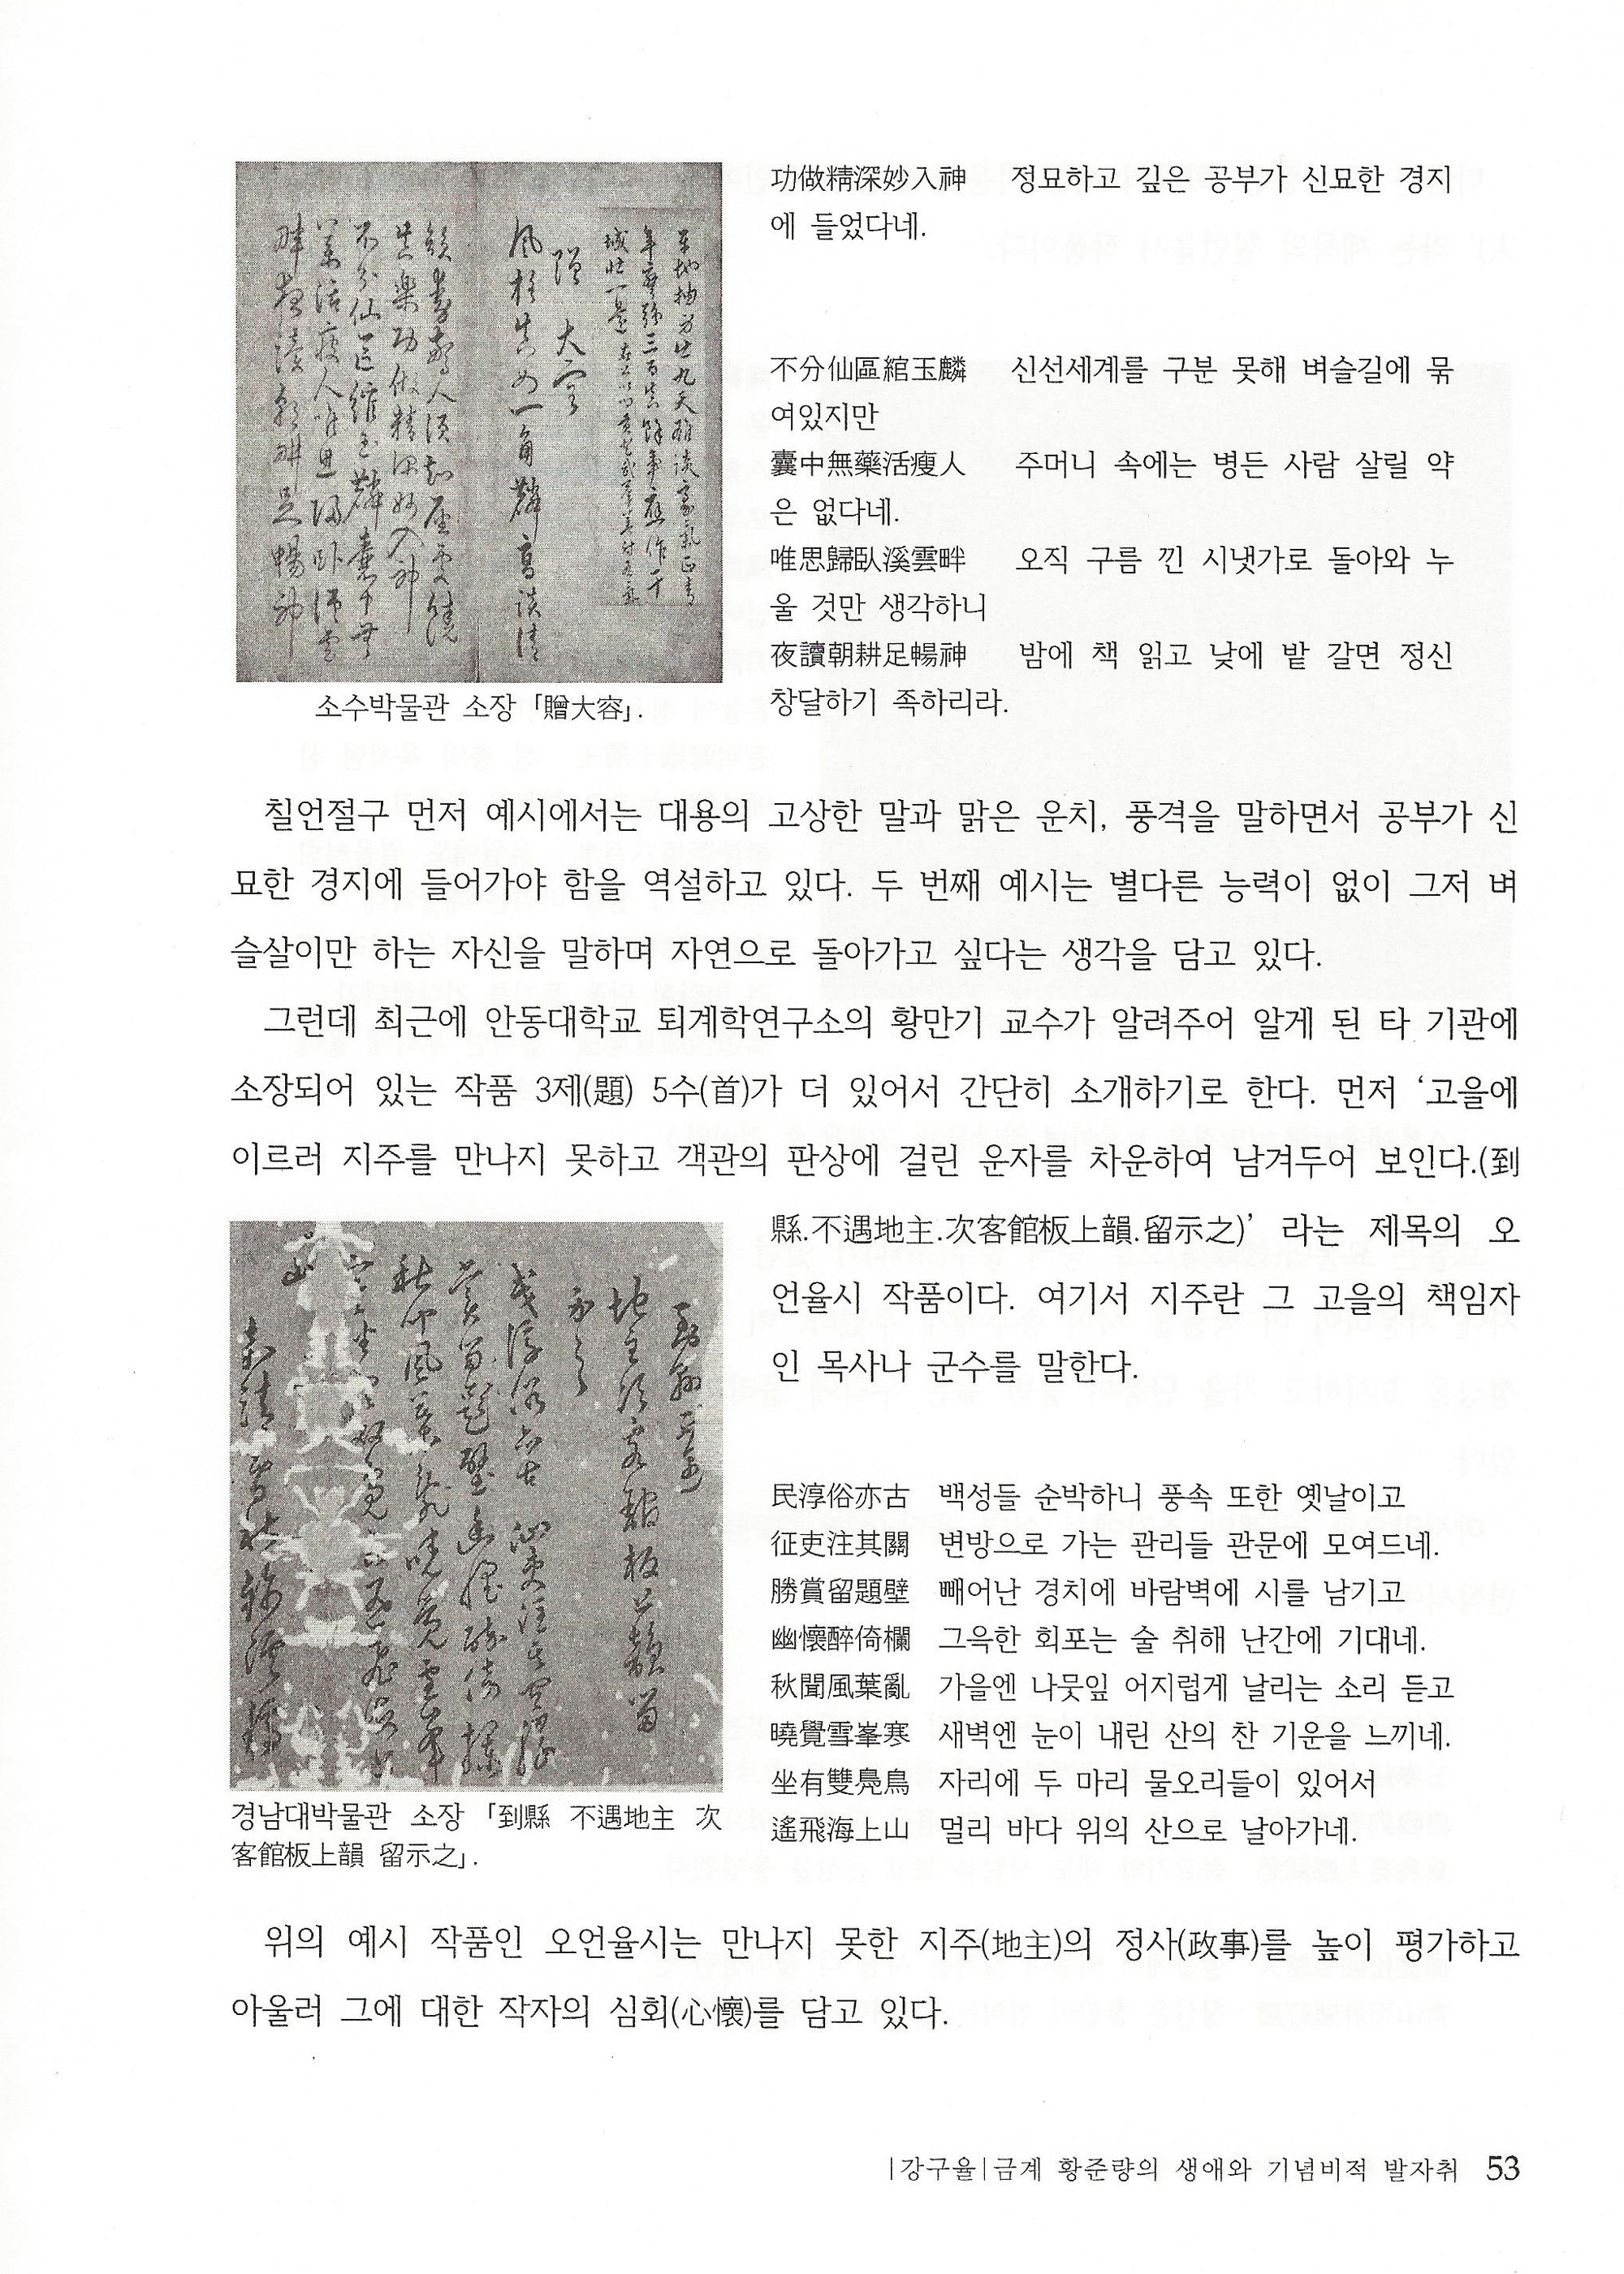 功做精深妙入神 정묘하고 깊은 공부가 신묘한 경지
에 들었다네.
不分仙區綰玉麟 신선세계를 구분 못해 벼슬길에 묶
여있지만
囊中無藥活瘦人 주머니 속에는 병든 사람 살릴 약
은 없다네.
唯思歸臥溪雲畔 오직 구름 낀 시냇가로 돌아와 누
울 것만 생각하니
夜讀朝耕足暢神 밤에 책 읽고 낮에 밭 갈면 정신
창달하기 족하리라.
소수박물관 소장 「贈大容」.
칠언절구 먼저 예시에서는 대용의 고상한 말과 맑은 운치, 풍격을 말하면서 공부가 신
묘한 경지에 들어가야 함을 역설하고 있다. 두 번째 예시는 별다른 능력이 없이 그저 벼
슬살이만 하는 자신을 말하며 자연으로 돌아가고 싶다는 생각을 담고 있다.
그런데 최근에 안동대학교 퇴계학연구소의 황만기 교수가 알려주어 알게 된 타 기관에
소장되어 있는 작품 3제(題) 5수(首)가 더 있어서 간단히 소개하기로 한다. 먼저 ‘고을에
이르러 지주를 만나지 못하고 객관의 판상에 걸린 운자를 차운하여 남겨두어 보인다.(到
縣.不遇地主.次客館板上韻.留示之)’ 라는 제목의 오
언율시 작품이다. 여기서 지주란 그 고을의 책임자
인 목사나 군수를 말한다.
民淳俗亦古 백성들 순박하니 풍속 또한 옛날이고
征吏注其關 변방으로 가는 관리들 관문에 모여드네.
勝賞留題壁 빼어난 경치에 바람벽에 시를 남기고
幽懷醉倚欄 그윽한 회포는 술 취해 난간에 기대네.
秋聞風葉亂 가을엔 나뭇잎 어지럽게 날리는 소리 듣고
曉覺雪峯寒 새벽엔 눈이 내린 산의 찬 기운을 느끼네.
坐有雙鳧鳥 자리에 두 마리 물오리들이 있어서
遙飛海上山 멀리 바다 위의 산으로 날아가네.
경남대박물관 소장 「到縣 不遇地主 次
客館板上韻 留示之」.
위의 예시 작품인 오언율시는 만나지 못한 지주(地主)의 정사(政事)를 높이 평가하고
아울러 그에 대한 작자의 심회(心懷)를 담고 있다.
|강구율|금계 황준량의 생애와 기념비적 발자취 53